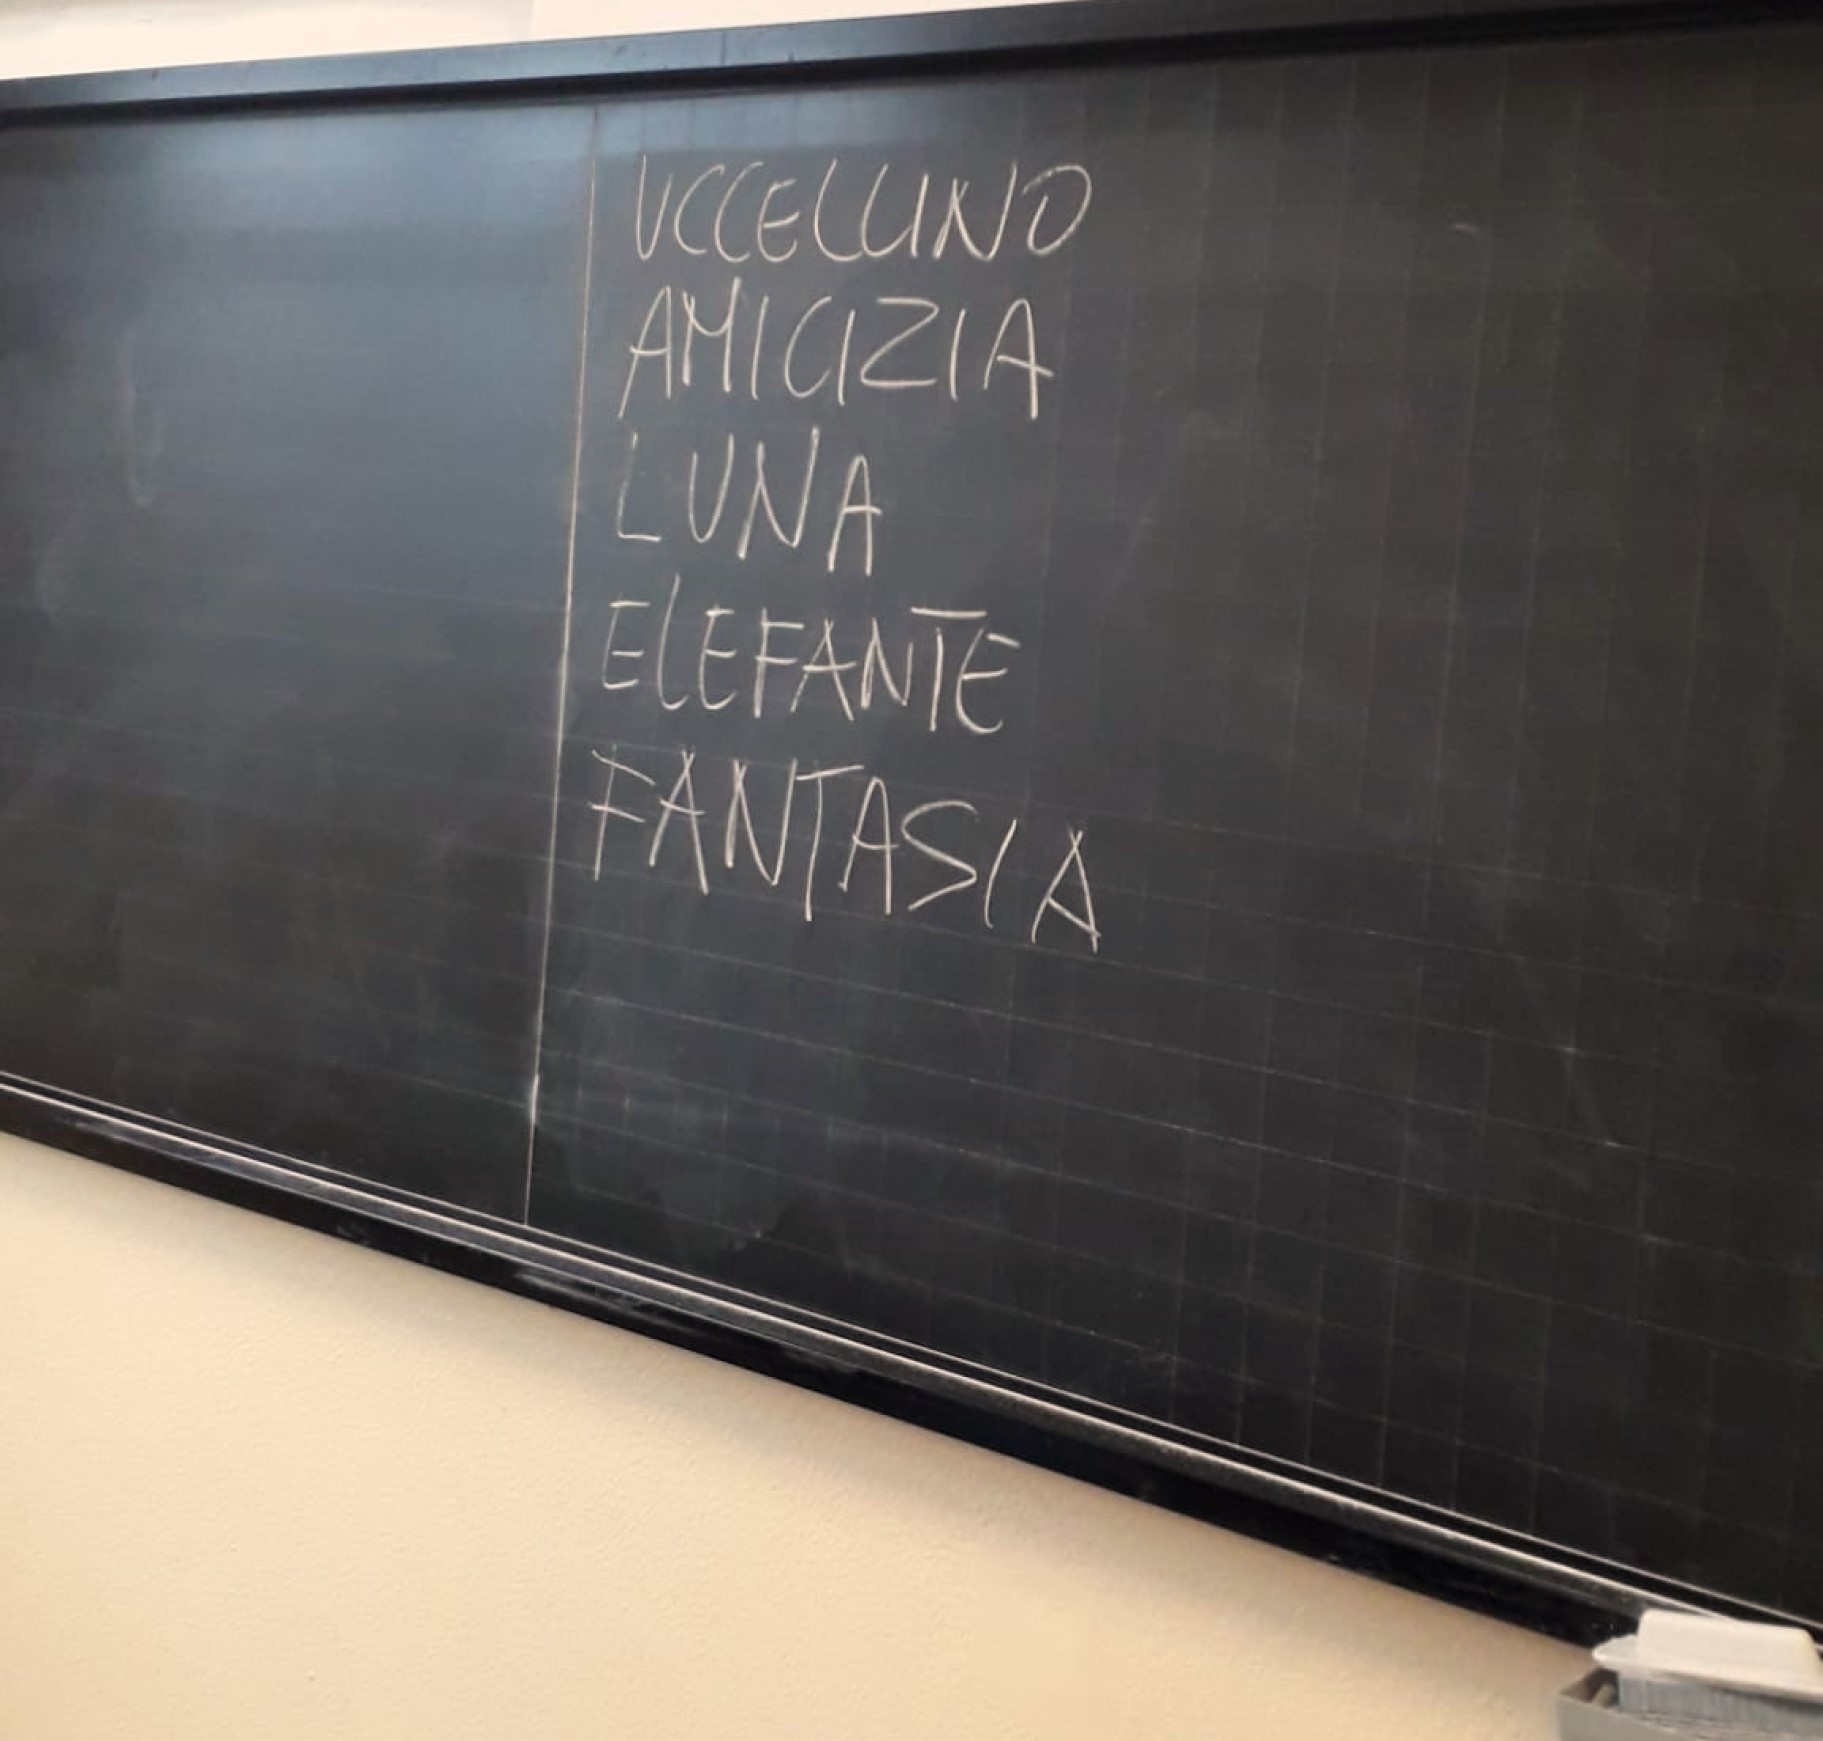 UCCELLINO
AMICIZIA
LUNA
ELEFANTE
FANTASIA